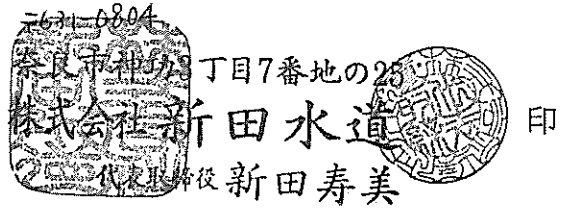 〒631-0804
奈良市神功3丁目7番地の25
株式会社 新田水道 印
代表取締役 新田寿美